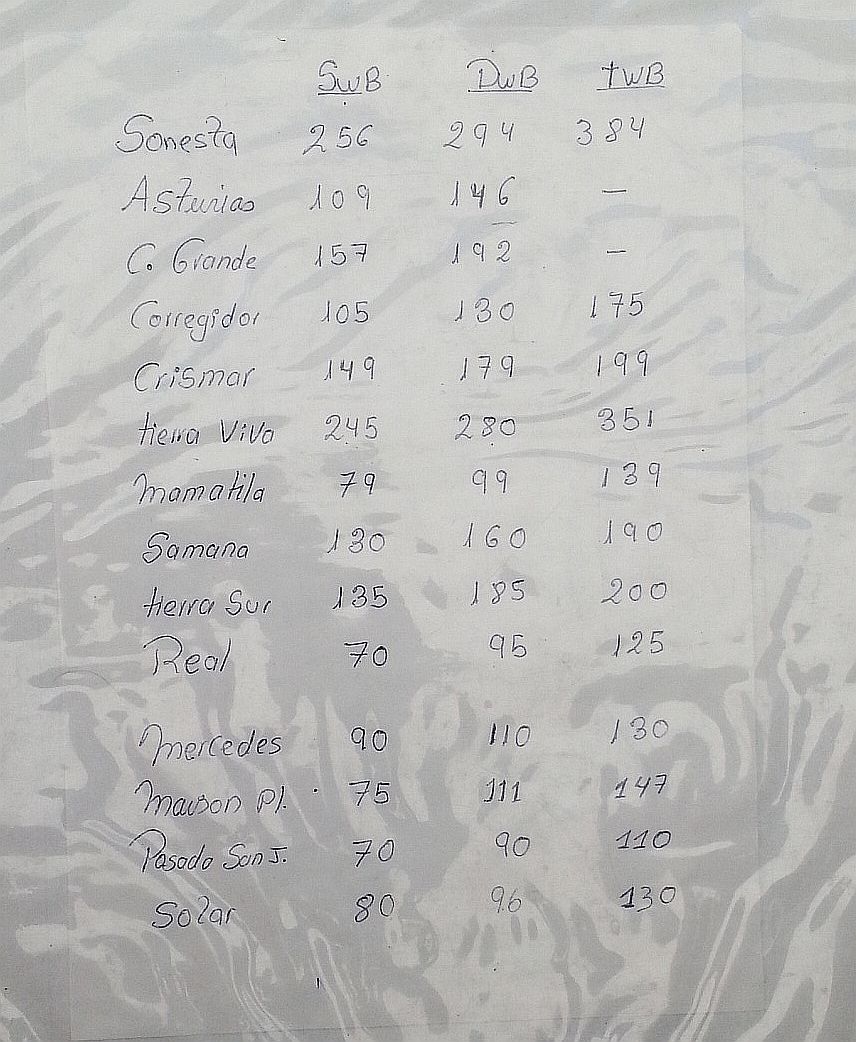 SwB DwB twB
Sonesta 256 294 384
Asturias 109 146 —
C. Grande 157 192 —
Corregidor 105 130 175
Crismar 149 179 199
tierra Viva 245 280 351
Mamatila 79 99 139
Samana 130 160 190
tierra Sur 135 185 200
Real 70 95 125
Mercedes 90 110 130
Maison Pl. 75 111 147
Posada San J. 70 90 110
Solar 80 96 130